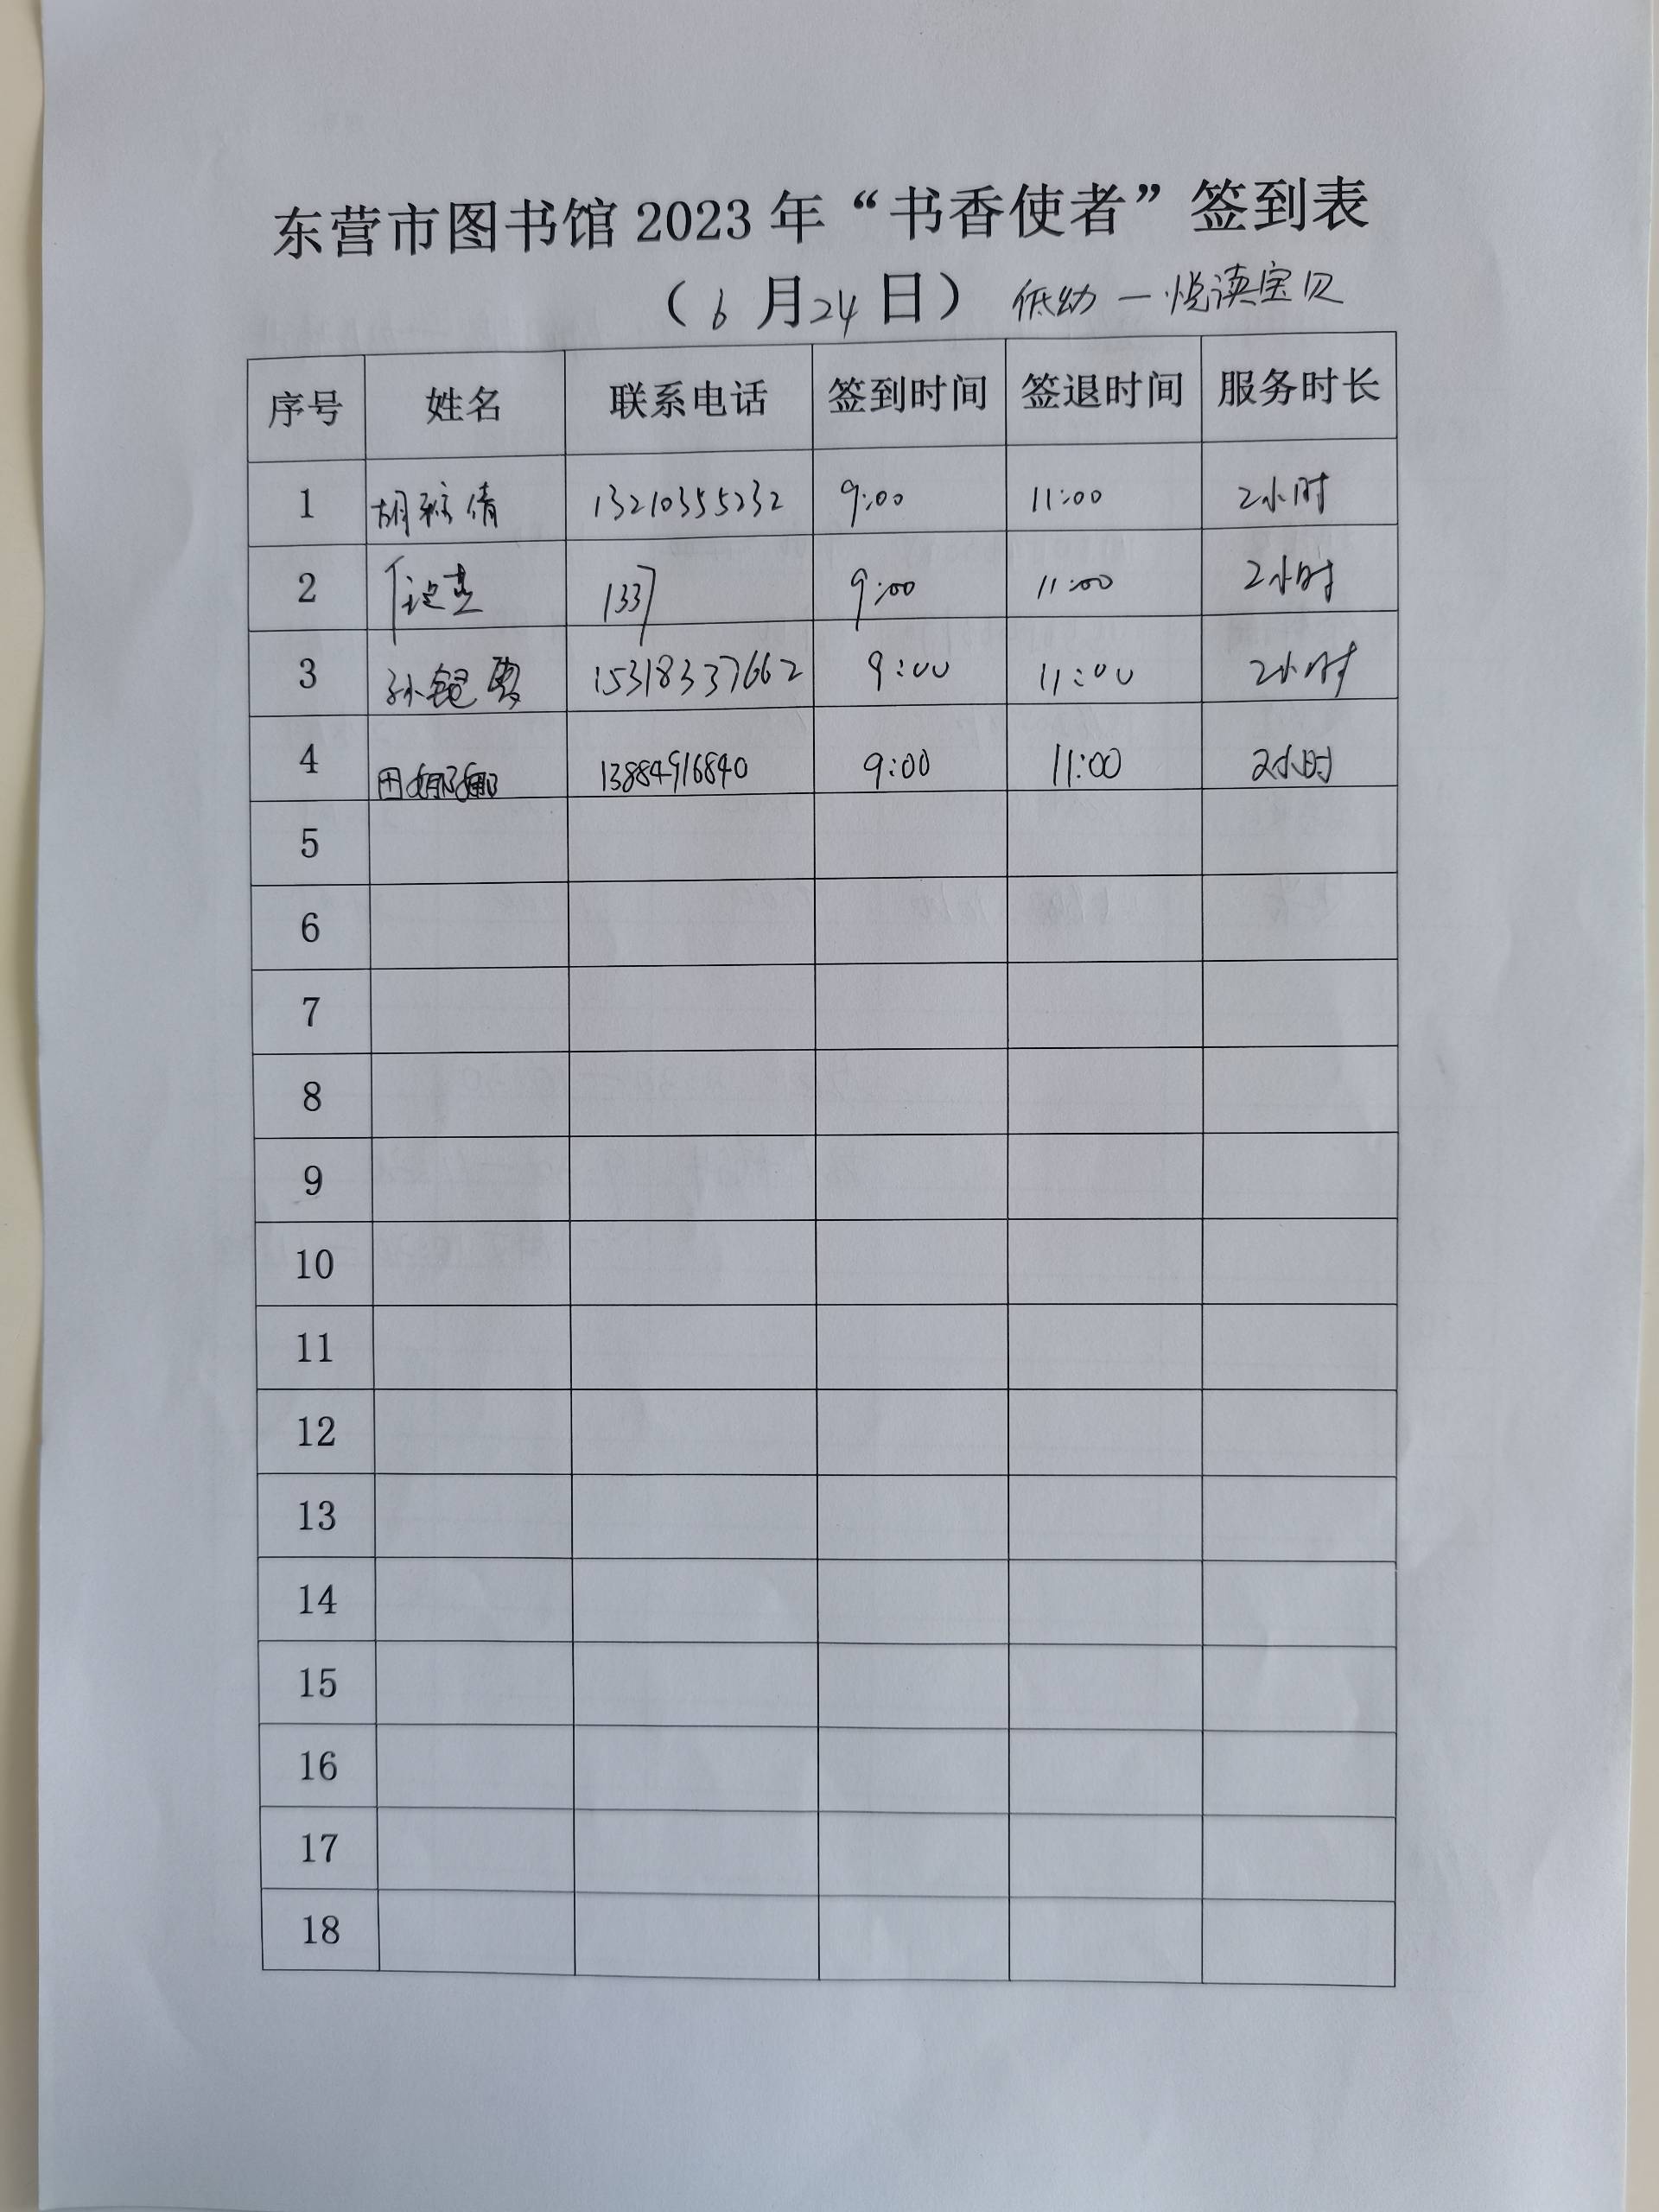 东营市图书馆 2023 年“书香使者”签到表
（ 6 月 24 日） 低幼 — 悦读宝贝
序号 姓名 联系电话 签到时间 签退时间 服务时长
1 胡 倩 13210355232 9:00 11:00 2小时
2 1337 9:00 11:00 2小时
3 孙 15318337662 9:00 11:00 2小时
4 田娜娜 13884916840 9:00 11:00 2小时
5
6
7
8
9
10
11
12
13
14
15
16
17
18